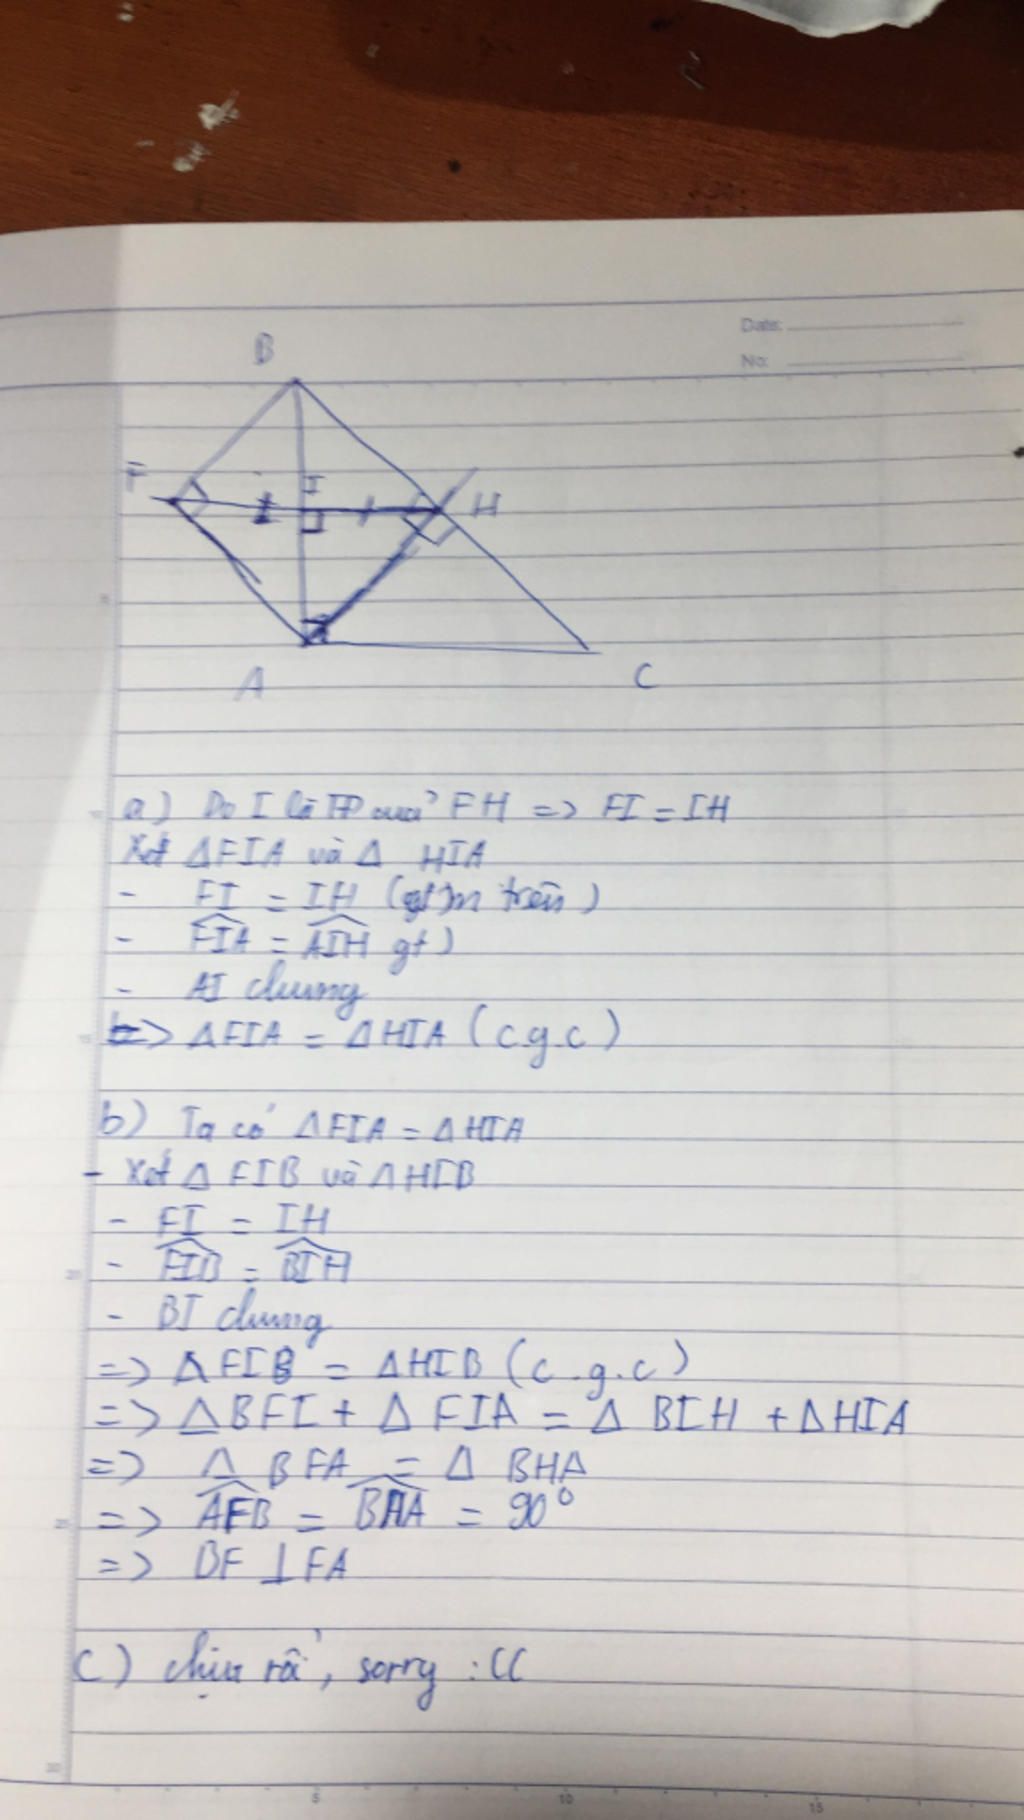 Date:
No:
B
F
I
H
A
C
a) Do I là TĐ của FH => FI = IH
Xét ΔFIA và Δ HIA
- FI = IH ( trên )
- FIA = AIH gt)
- AI chung
=> ΔFIA = ΔHIA ( c.g.c )
b) Ta có ΔFIA = ΔHIA
- Xét Δ FIB và ΔHIB
- FI = IH
- FIB = BIH
- BI chung
=> ΔFIB = ΔHIB ( c.g.c )
=> ΔBFI + Δ FIA = Δ BIH + ΔHIA
=> Δ BFA = Δ BHA
=> AFB = BHA = 90°
=> BF ⊥ FA
c) chịu rồi, sorry :((
5
10
15
20
25
30
5
10
15